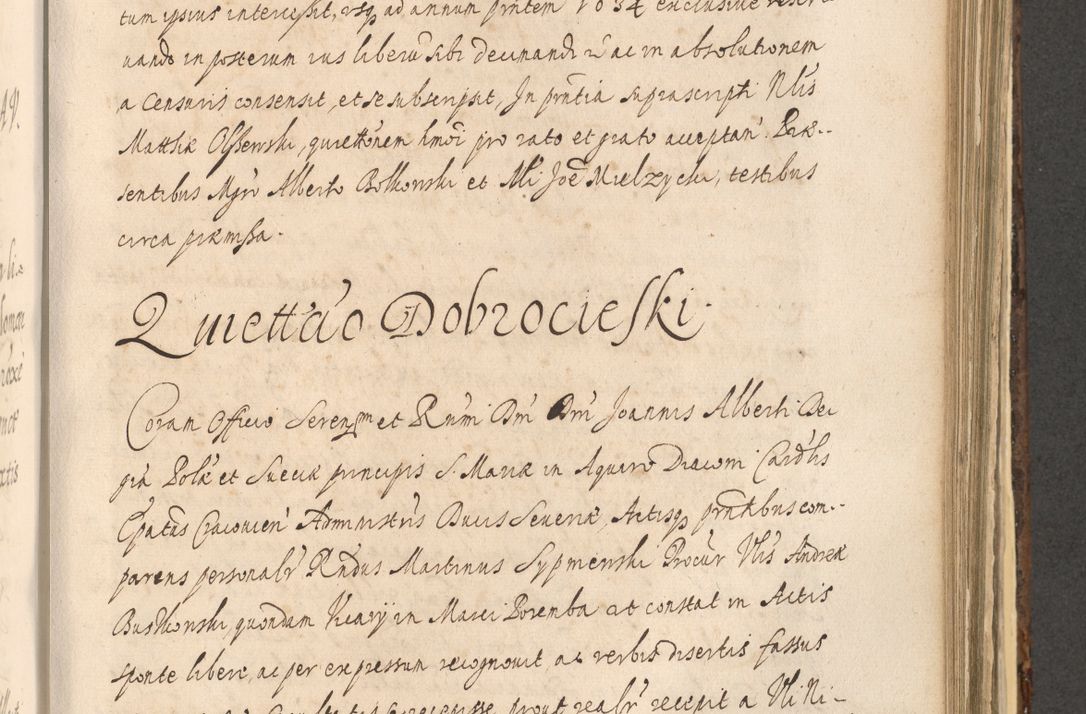 tum ipsius intercessit, usq₃ ad annum pñtem 1634 exclusive reser-
vando in posterum ius liberũ sibi decimandi ĩ ac in absolutionem
a Censuris consensit, et se subscripsit, In pñtia suprascripti Nlis
Matthiæ Olszewski, quiettõnem hmõi pro rato et grato acceptan̄. Præ-
sentibus Mgrõ Alberto Bolkowski et Mli Joẽ Mielzycki, testibus
circa præmissa.
Quiettaõ Dobrocieski.
Coram Officio Sereñm et Rñmi Dñi Dñi Joannis Alberti Dei
grã Polæ et Sueciæ principis S. Mariæ in Aquiro Diaconi Cardlis
Epatus Cracovien̄ Administris Ducis Severiæ, Actisq₃ pñtibus com-
parens personalr Rñdus Martinus Sypnienski Procur Nlis Andreæ
Buskowski, quondam Vicarij in Marci Poremba ut constat in Actis
sponte libere, ac per expressum recognovit, ac verbis disertis fassus
prout realr recepit a Nli Ni-